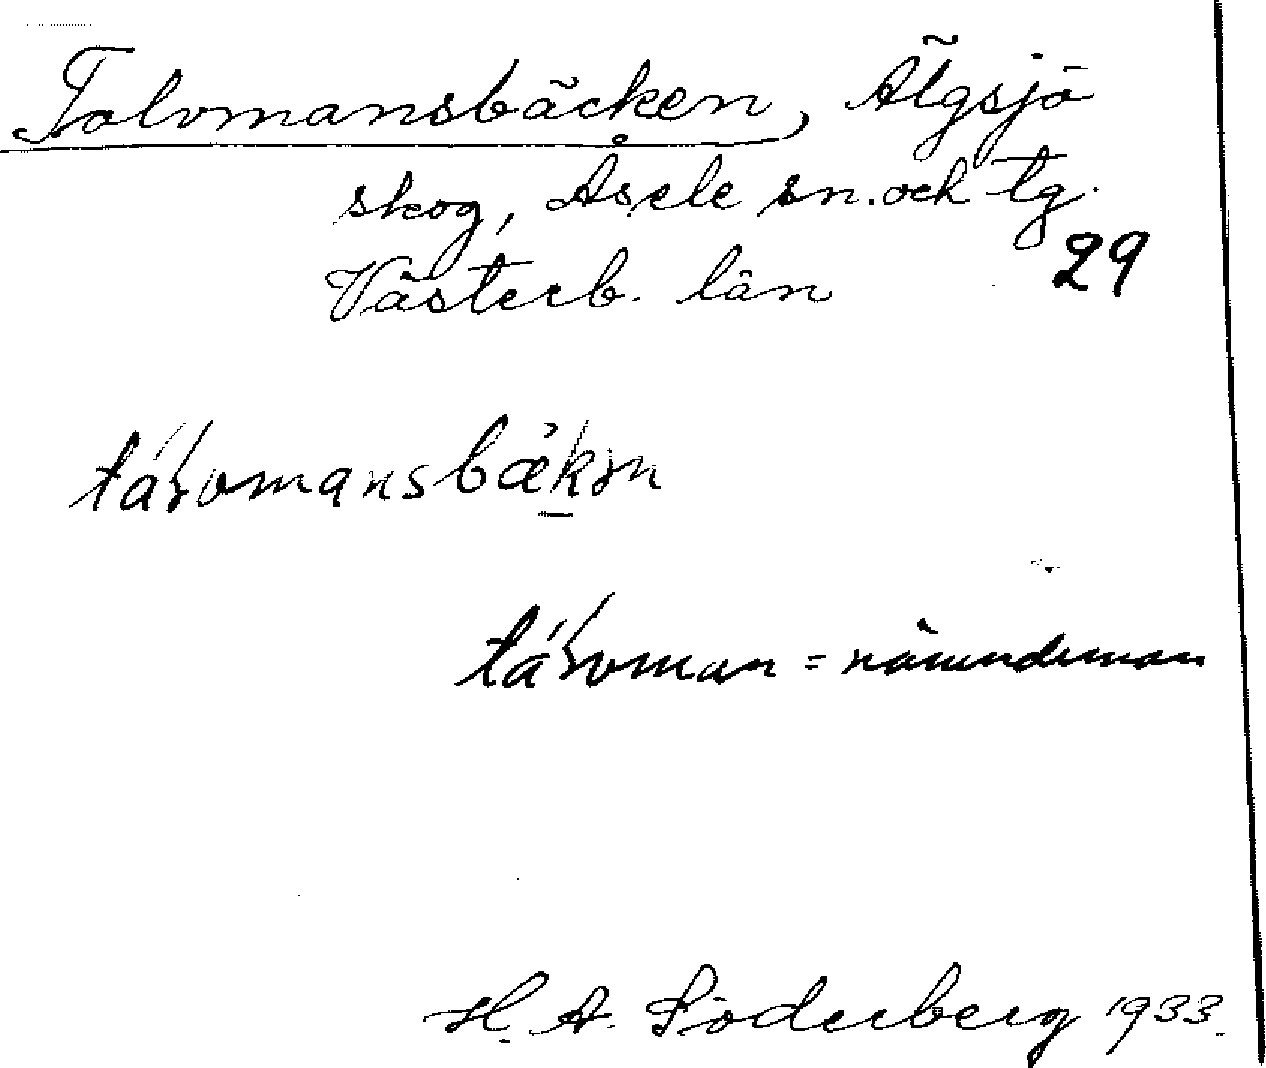 Tolvmansbäcken, Älgsjö
skog, Åsele sn. och tg.
Västerb. län 29
táḷvmansbæ̀kṇ
táḷvman = nämndeman
H. A. Söderberg 1933.